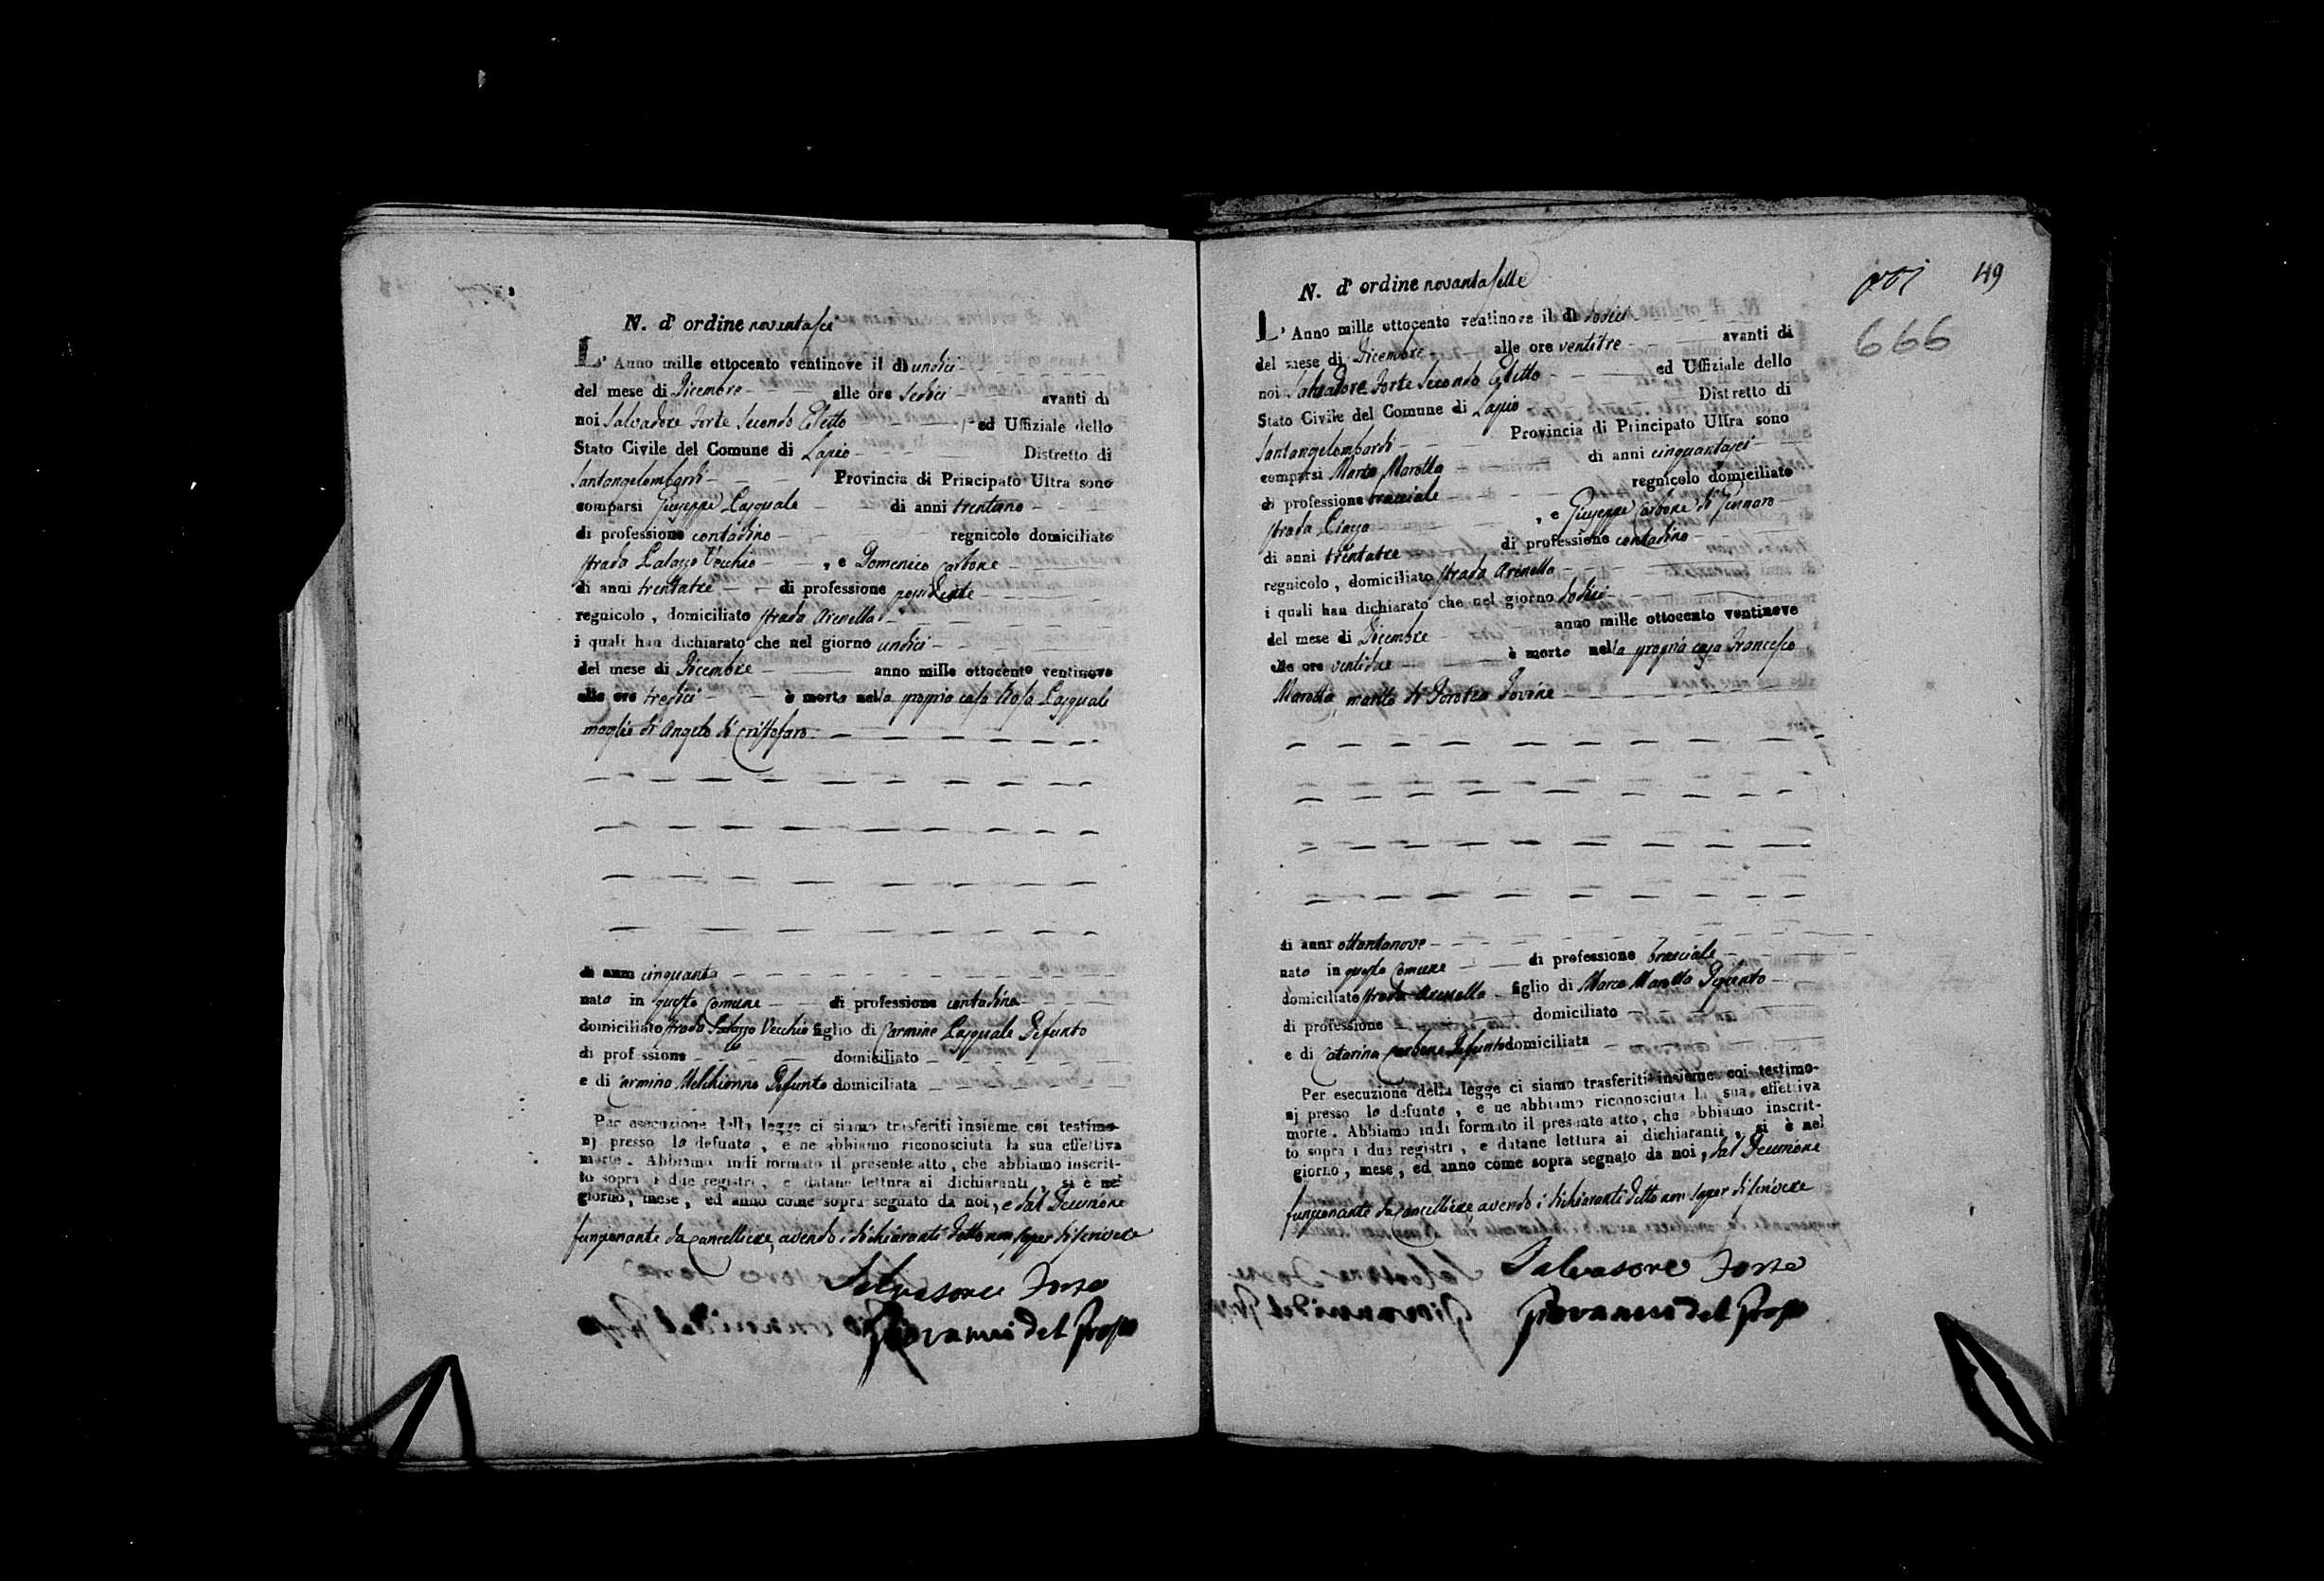 N. d'ordine novantasei
L'Anno mille ottocento ventinove il dì undici
del mese di Dicembre alle ore sedici avanti di
noi Salvadore Forte Secondo Eletto ed Uffiziale dello
Stato Civile del Comune di Lapio Distretto di
Santangelombardi Provincia di Principato Ultra sono
comparsi Giuseppe Pasquale di anni trentuno
di professione contadino regnicolo domiciliato
strada Palazzo Vecchio , e Domenico Carbone
di anni trentatre di professione possidente
regnicolo , domiciliato strada Arenella
i quali han dichiarato che nel giorno undici
del mese di Dicembre anno mille ottocento ventinove
alle ore tredici è morta nella propria casa Rosa Pasquale
moglie di Angelo di Cristofaro
di anni cinquanta
nata in questo Comune di professione contadina
domiciliato strada Palazzo Vecchio figlio di Carmine Pasquale Defunto
di professione domiciliato
e di Carmina Melchionno Defunta domiciliata
Per esecuzione della legge ci siamo trasferiti insieme coi testimo-
nj presso la defunta , e ne abbiamo riconosciuta la sua effettiva
morte . Abbiamo indi formato il presente atto , che abbiamo inscrit-
to sopra i due registri , e datane lettura ai dichiaranti , si è nel
giorno , mese , ed anno come sopra segnato da noi , e dal Decurione
funzionante da Cancelliere, avendo i dichiaranti detto non saper di scrivere
Salvatore Forte
Giovanni del Grosso
49
666
N. d'ordine novantasette
L'Anno mille ottocento ventinove il dì dodici
del mese di Dicembre alle ore ventitre avanti di
noi Salvadore Forte Secondo Eletto ed Uffiziale dello
Stato Civile del Comune di Lapio Distretto di
Santangelombardi Provincia di Principato Ultra sono
comparsi Marco Marotta di anni cinquantasei
di professione bracciale regnicolo domiciliato
strada Piazza , e Giuseppe Carbone di Gennaro
di anni trentatre di professione contadino
regnicolo , domiciliato strada Arenella
i quali han dichiarato che nel giorno dodici
del mese di Dicembre anno mille ottocento ventinove
alle ore ventitre è morto nella propria casa Francesco
Marotta marito di Dorotea Iovine
di anni ottantanove
nato in questo Comune di professione bracciale
domiciliato strada Arenella figlio di Marco Marotta Defunto
di professione domiciliato
e di Catarina Carbone Defunta domiciliata
Per esecuzione della legge ci siamo trasferiti insieme coi testimo-
nj presso lo defunto , e ne abbiamo riconosciuta la sua effettiva
morte . Abbiamo indi formato il presente atto , che abbiamo inscrit-
to sopra i due registri , e datane lettura ai dichiaranti , si è nel
giorno , mese , ed anno come sopra segnato da noi , dal Decurione
funzionante da Cancelliere, avendo i dichiaranti detto non saper di scrivere
Salvatore Forte
Giovanni del Grosso